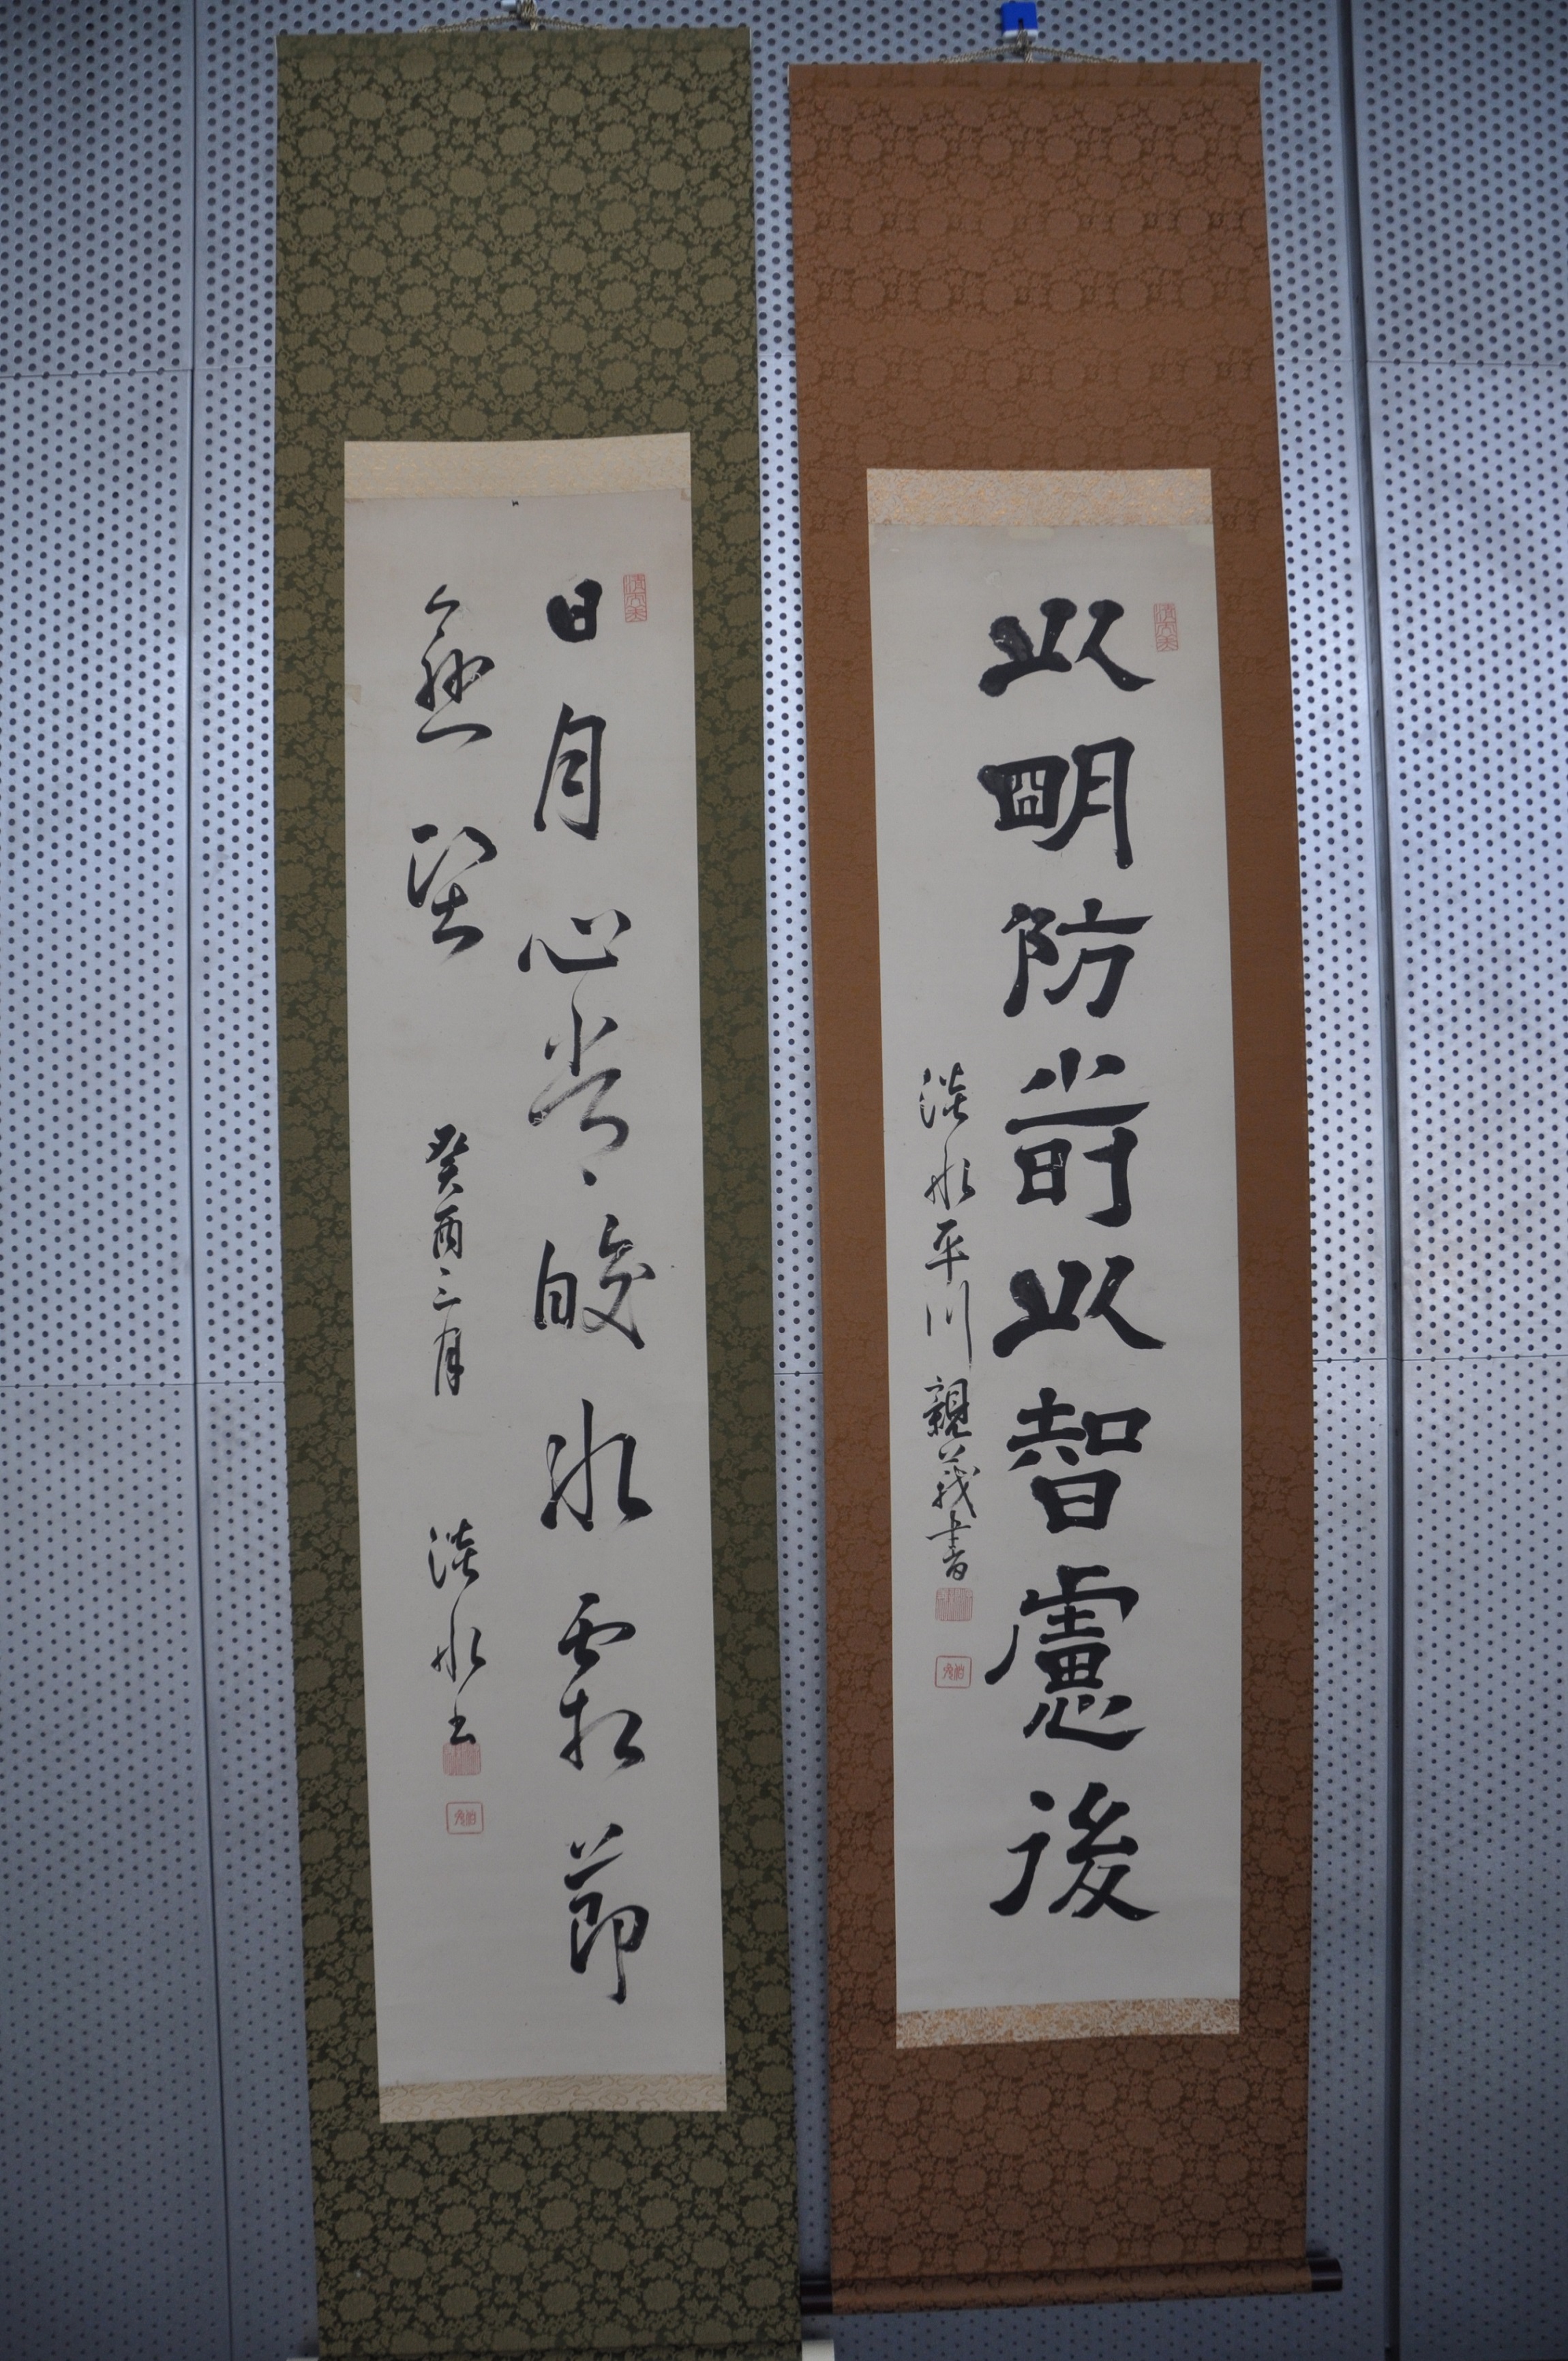 以明防前以智慮後
淡水平川親義書
日月心常皎氷霜節
愈堅
癸酉三月 淡水書